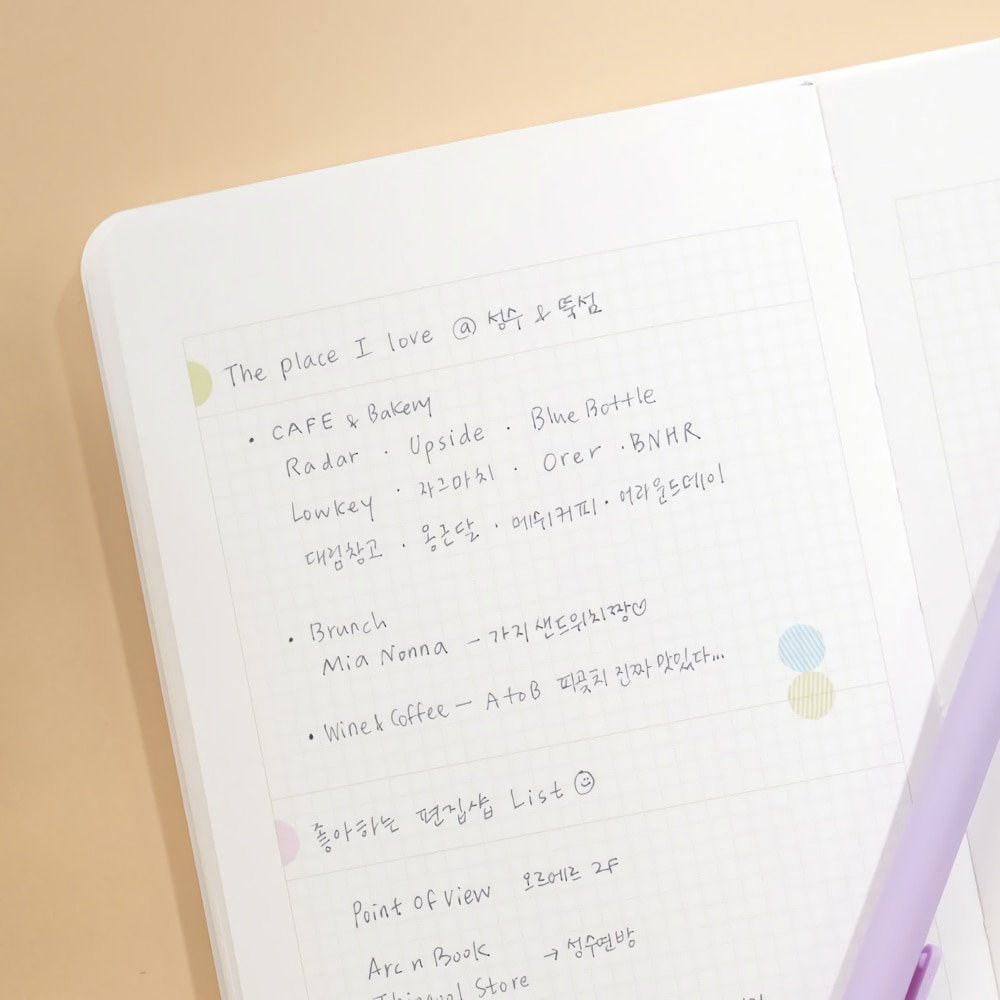 The place I love @ 성수 & 뚝섬
• CAFE & Bakery
Radar · Upside · Blue Bottle
Lowkey · 자그마치 · Orer · BNHR
대림창고 · 옹근달 · 메쉬커피 · 어라운드데이
• Brunch
Mia Nonna - 가지샌드위치짱♡
• Wine & Coffee - A to B 피끚치 진짜 맛있다...
좋아하는 편집샵 List ☺
Point Of View 오르에르 2F
Arc n Book → 성수연방
Store